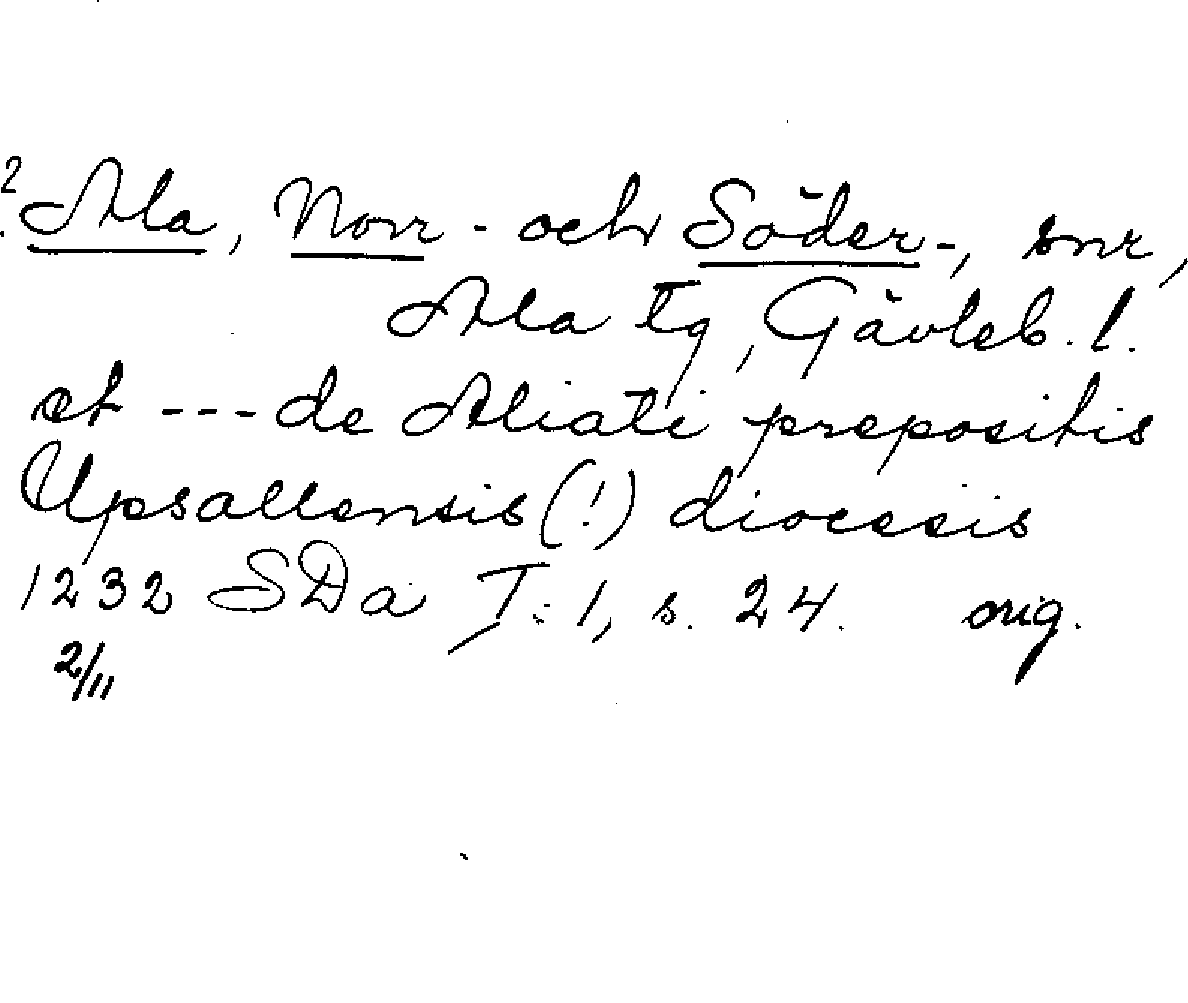 ? Ala, Norr- och Söder-, snr,
Ala tg, Gävleb. l.
et --- de Aliati prepositis
Upsallensis (!) diocesis
1232 SDa I:1, s. 24. orig.
2/11